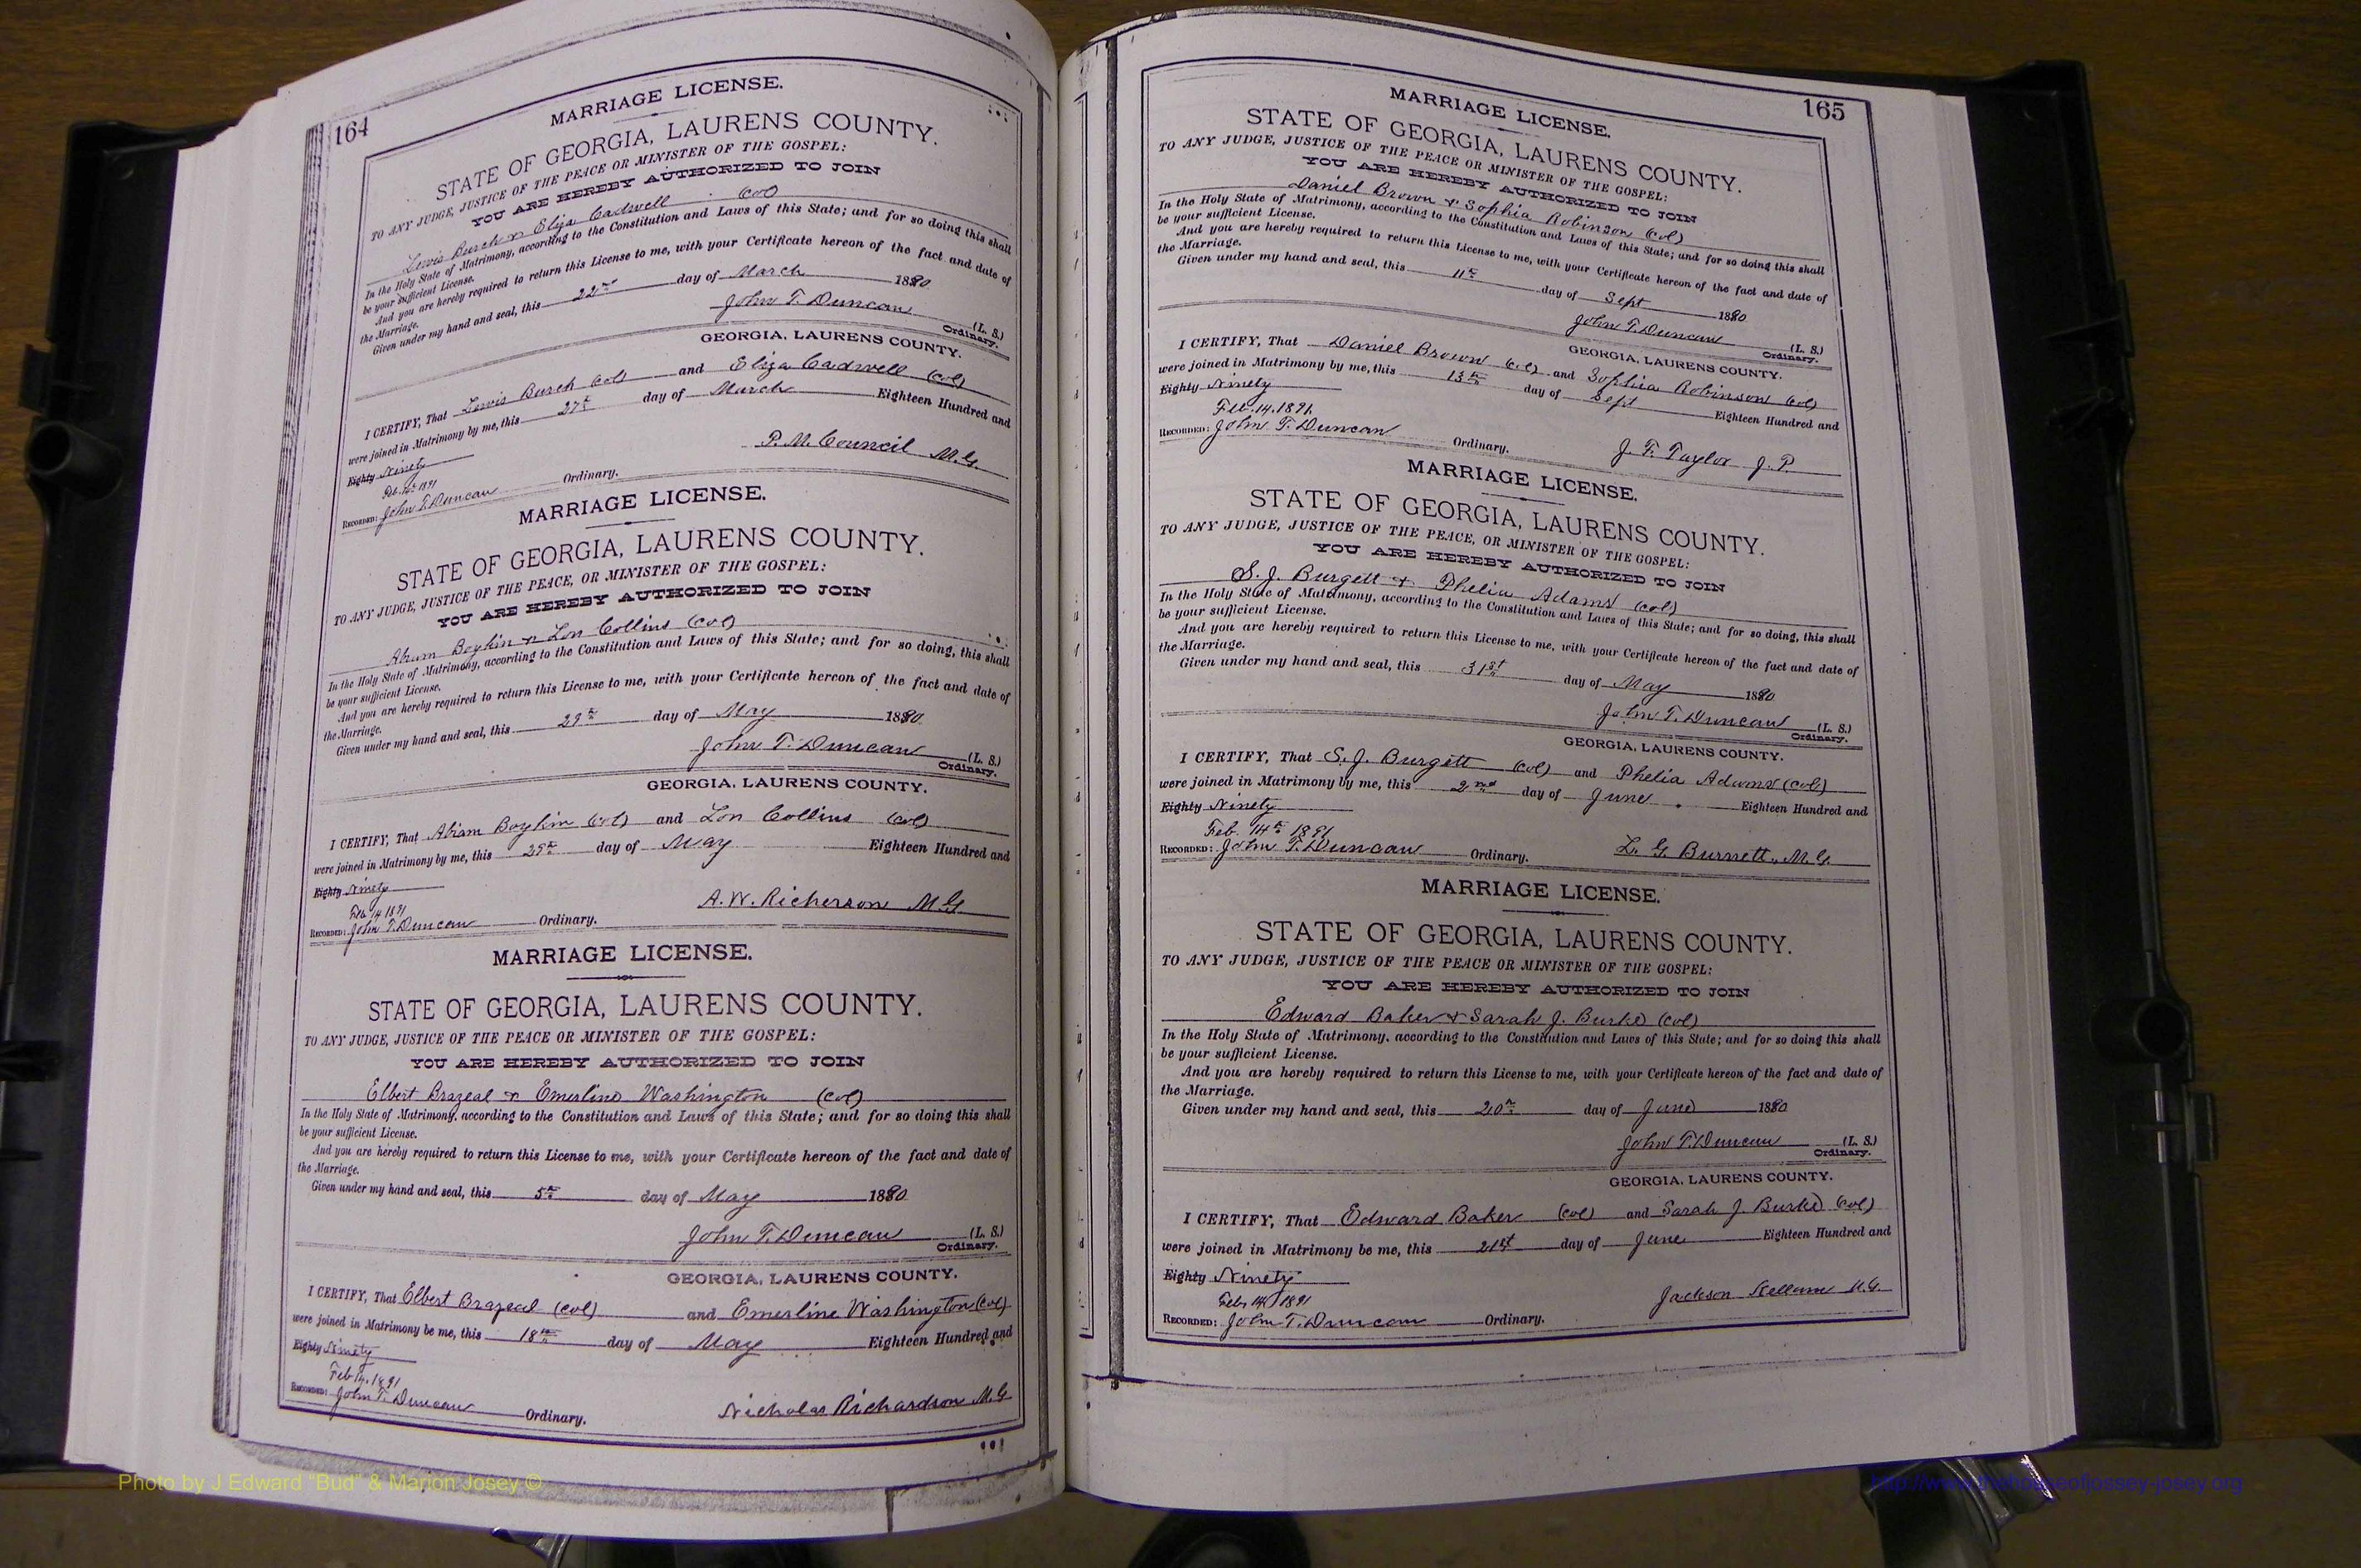 164
MARRIAGE LICENSE.
STATE OF GEORGIA, LAURENS COUNTY.
TO ANY JUDGE, JUSTICE OF THE PEACE OR MINISTER OF THE GOSPEL:
YOU ARE HEREBY AUTHORIZED TO JOIN
Lewis Burch & Eliza Cadwell (Col)
In the Holy State of Matrimony, according to the Constitution and Laws of this State; and for so doing this shall
be your sufficient License.
And you are hereby required to return this License to me, with your Certificate hereon of the fact and date of
the Marriage.
Given under my hand and seal, this 22nd day of March 1890
John T. Duncan (L. S.)
Ordinary.
GEORGIA, LAURENS COUNTY.
I CERTIFY, That Lewis Burch (Col) and Eliza Cadwell (Col)
were joined in Matrimony by me, this 27th day of March Eighteen Hundred and
Eighty Ninety
P. M. Council M.G.
Feb. 14th 1891
RECORDED: John T. Duncan Ordinary.
MARRIAGE LICENSE.
STATE OF GEORGIA, LAURENS COUNTY.
TO ANY JUDGE, JUSTICE OF THE PEACE, OR MINISTER OF THE GOSPEL:
YOU ARE HEREBY AUTHORIZED TO JOIN
Abram Boykin & Lou Collins (Col)
In the Holy State of Matrimony, according to the Constitution and Laws of this State; and for so doing, this shall
be your sufficient License.
And you are hereby required to return this License to me, with your Certificate hereon of the fact and date of
the Marriage.
Given under my hand and seal, this 29th day of May 1890
John T. Duncan (L. S.)
Ordinary.
GEORGIA, LAURENS COUNTY.
I CERTIFY, That Abram Boykin (Col) and Lou Collins (Col)
were joined in Matrimony by me, this 29th day of May Eighteen Hundred and
Eighty Ninety
A. W. Richerson M.G.
Feb 14 1891
RECORDED: John T. Duncan Ordinary.
MARRIAGE LICENSE.
STATE OF GEORGIA, LAURENS COUNTY.
TO ANY JUDGE, JUSTICE OF THE PEACE OR MINISTER OF THE GOSPEL:
YOU ARE HEREBY AUTHORIZED TO JOIN
Elbert Brazeal & Emerline Washington (Col)
In the Holy State of Matrimony, according to the Constitution and Laws of this State; and for so doing this shall
be your sufficient License.
And you are hereby required to return this License to me, with your Certificate hereon of the fact and date of
the Marriage.
Given under my hand and seal, this 5th day of May 1890
John T. Duncan (L. S.)
Ordinary.
GEORGIA, LAURENS COUNTY.
I CERTIFY, That Elbert Brazeal (Col) and Emerline Washington (Col)
were joined in Matrimony be me, this 18th day of May Eighteen Hundred and
Eighty Ninety
Feb 14, 1891
RECORDED: John T. Duncan Ordinary.
Nicholas Richardson M.G.
165
MARRIAGE LICENSE.
STATE OF GEORGIA, LAURENS COUNTY.
TO ANY JUDGE, JUSTICE OF THE PEACE OR MINISTER OF THE GOSPEL:
YOU ARE HEREBY AUTHORIZED TO JOIN
Daniel Brown & Sophia Robinson (Col)
In the Holy State of Matrimony, according to the Constitution and Laws of this State; and for so doing this shall
be your sufficient License.
And you are hereby required to return this License to me, with your Certificate hereon of the fact and date of
the Marriage.
Given under my hand and seal, this 11th day of Sept 1890
John T. Duncan (L. S.)
Ordinary.
GEORGIA, LAURENS COUNTY.
I CERTIFY, That Daniel Brown (Col) and Sophia Robinson (Col)
were joined in Matrimony by me, this 13th day of Sept Eighteen Hundred and
Eighty Ninety
Feb. 14. 1891.
RECORDED: John T. Duncan Ordinary.
J. F. Taylor J. P.
MARRIAGE LICENSE.
STATE OF GEORGIA, LAURENS COUNTY.
TO ANY JUDGE, JUSTICE OF THE PEACE, OR MINISTER OF THE GOSPEL:
YOU ARE HEREBY AUTHORIZED TO JOIN
S. J. Burgett & Phelia Adams (Col)
In the Holy State of Matrimony, according to the Constitution and Laws of this State; and for so doing, this shall
be your sufficient License.
And you are hereby required to return this License to me, with your Certificate hereon of the fact and date of
the Marriage.
Given under my hand and seal, this 31st day of May 1890
John T. Duncan (L. S.)
Ordinary.
GEORGIA, LAURENS COUNTY.
I CERTIFY, That S. J. Burgett (Col) and Phelia Adams (Col)
were joined in Matrimony by me, this 2nd day of June Eighteen Hundred and
Eighty Ninety
Feb. 14th 1891
RECORDED: John T. Duncan Ordinary.
L. G. Burnett, M.G.
MARRIAGE LICENSE.
STATE OF GEORGIA, LAURENS COUNTY.
TO ANY JUDGE, JUSTICE OF THE PEACE OR MINISTER OF THE GOSPEL:
YOU ARE HEREBY AUTHORIZED TO JOIN
Edward Baker & Sarah J. Burke (Col)
In the Holy State of Matrimony, according to the Constitution and Laws of this State; and for so doing this shall
be your sufficient License.
And you are hereby required to return this License to me, with your Certificate hereon of the fact and date of
the Marriage.
Given under my hand and seal, this 20th day of June 1890
John T. Duncan (L. S.)
Ordinary.
GEORGIA, LAURENS COUNTY.
I CERTIFY, That Edward Baker (Col) and Sarah J. Burke (Col)
were joined in Matrimony be me, this 21st day of June Eighteen Hundred and
Eighty Ninety
Jackson Kellam M.G.
Feb. 14 1891
RECORDED: John T. Duncan Ordinary.
Photo by J Edward "Bud" & Marion Josey ©
http://www.thehouseofjossey-josey.org